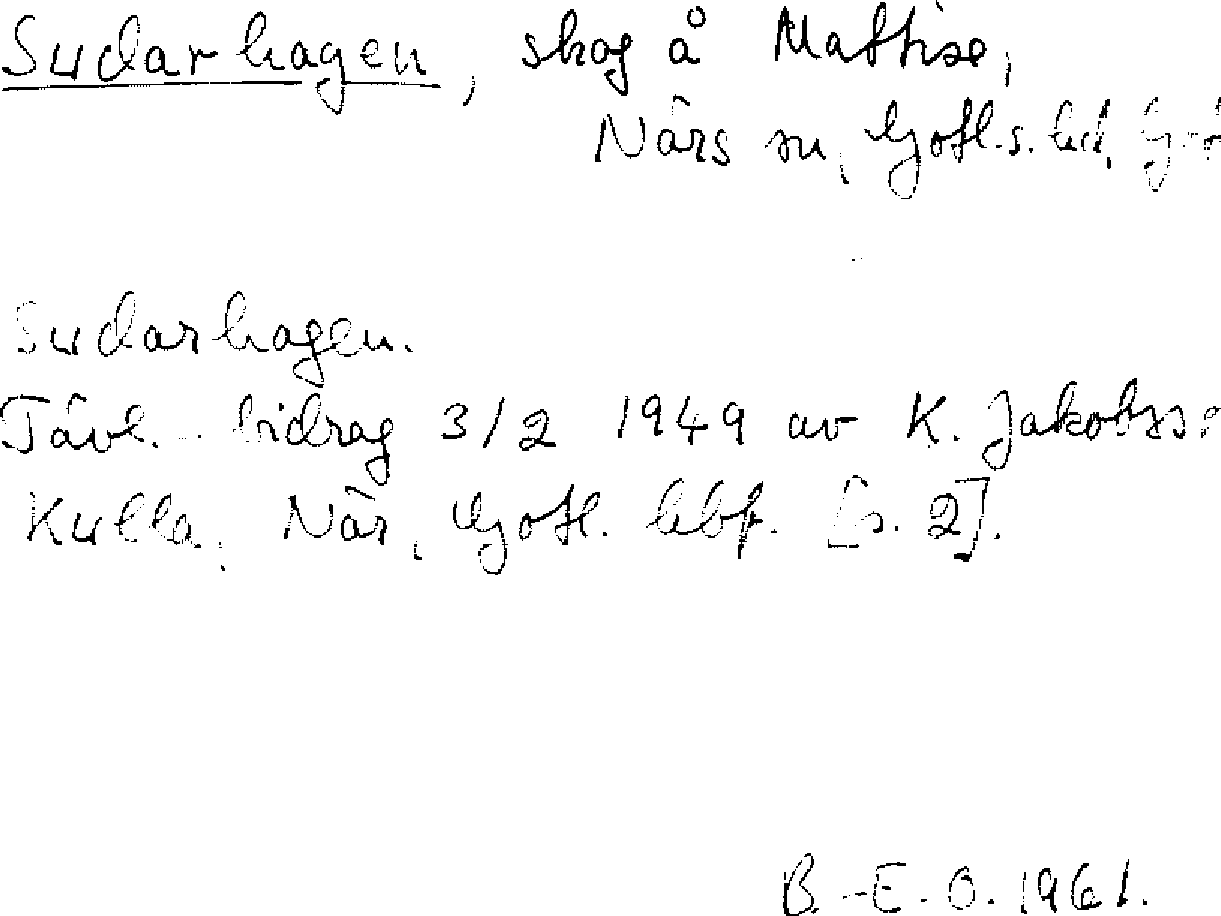 Sudarhagen, skog å Mattise,
Närs sn, Gotl. s. hd,
Sudarhagen.
Tävl.-bidrag 3/2 1949 av K. Jakobss
Kulla, När, Gotl. lbf. [s. 2].
B.-E. O. 1961.